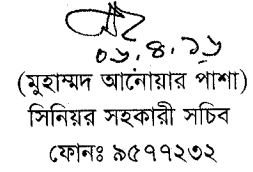 ০৬.৪.১৬
(মুহাম্মদ আনোয়ার পাশা)
সিনিয়র সহকারী সচিব
ফোনঃ ৯৫৭৭২৩২